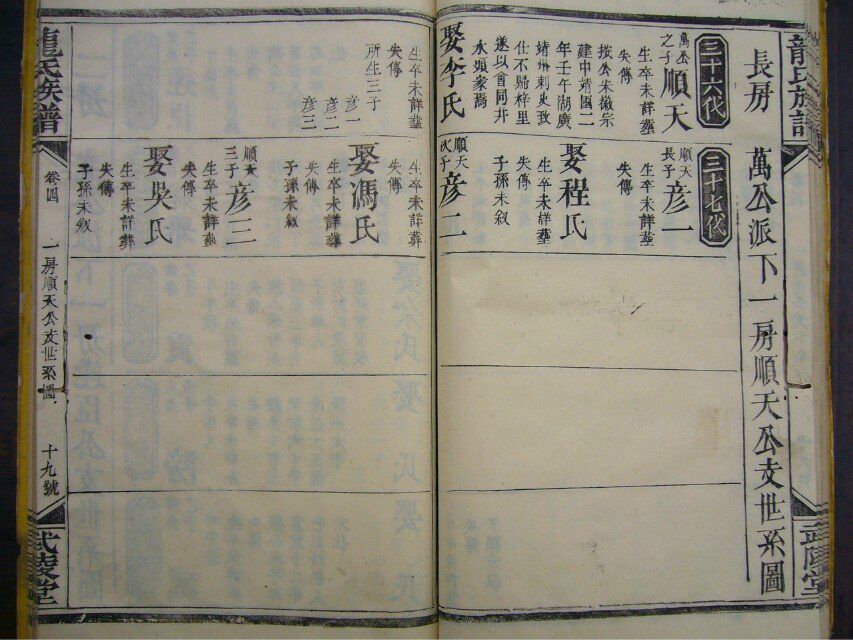 龍氏族譜
武陵堂
長房 萬公派下一房順天公支世系圖
三十六代
萬公
之子
順天
生卒未詳塟
失傳
按公宋徽宗
建中靖國二
年壬午湖廣
靖州刺史致
仕不歸梓里
遂以會同井
水頭家焉
娶李氏
生卒未詳塟
失傳
所生三子
彥一
彥二
彥三
三十七代
順天
長子
彥一
生卒未詳塟
失傳
娶程氏
生卒未詳塟
失傳
子孫未叙
順天
次子
彥二
生卒未詳塟
失傳
娶馮氏
生卒未詳葬
失傳
子孫未叙
順天
三子
彥三
生卒未詳塟
失傳
娶吳氏
生卒未詳葬
失傳
子孫未叙
龍氏族譜
卷四
一房順天公支世系圖
十九號
武陵堂